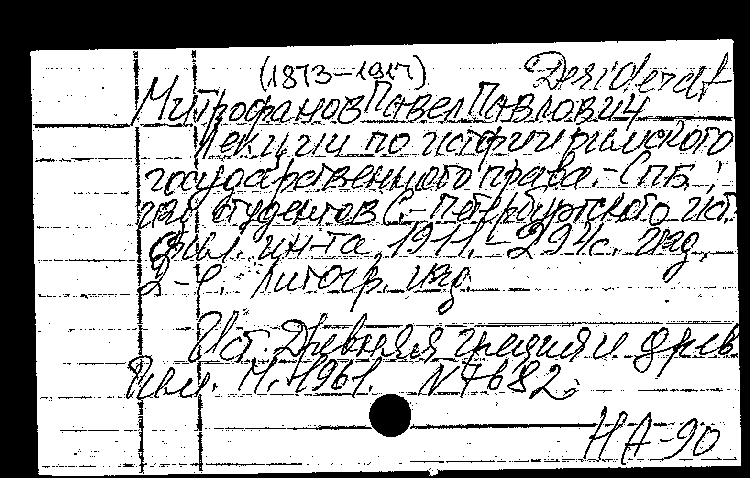 (1873–1917) Desiderat
Митрофанов Павел Павлович
Лекции по истории римского
государственного права. – СПб.;
изд. студентов С.-Петербургского ист.
фил. ин-та, 1911. – 294 с. Изд.
2-е. Литогр. изд.
Ист. Древняя Греция и древ
Рим. М. 1961. N 7682.
НА-90